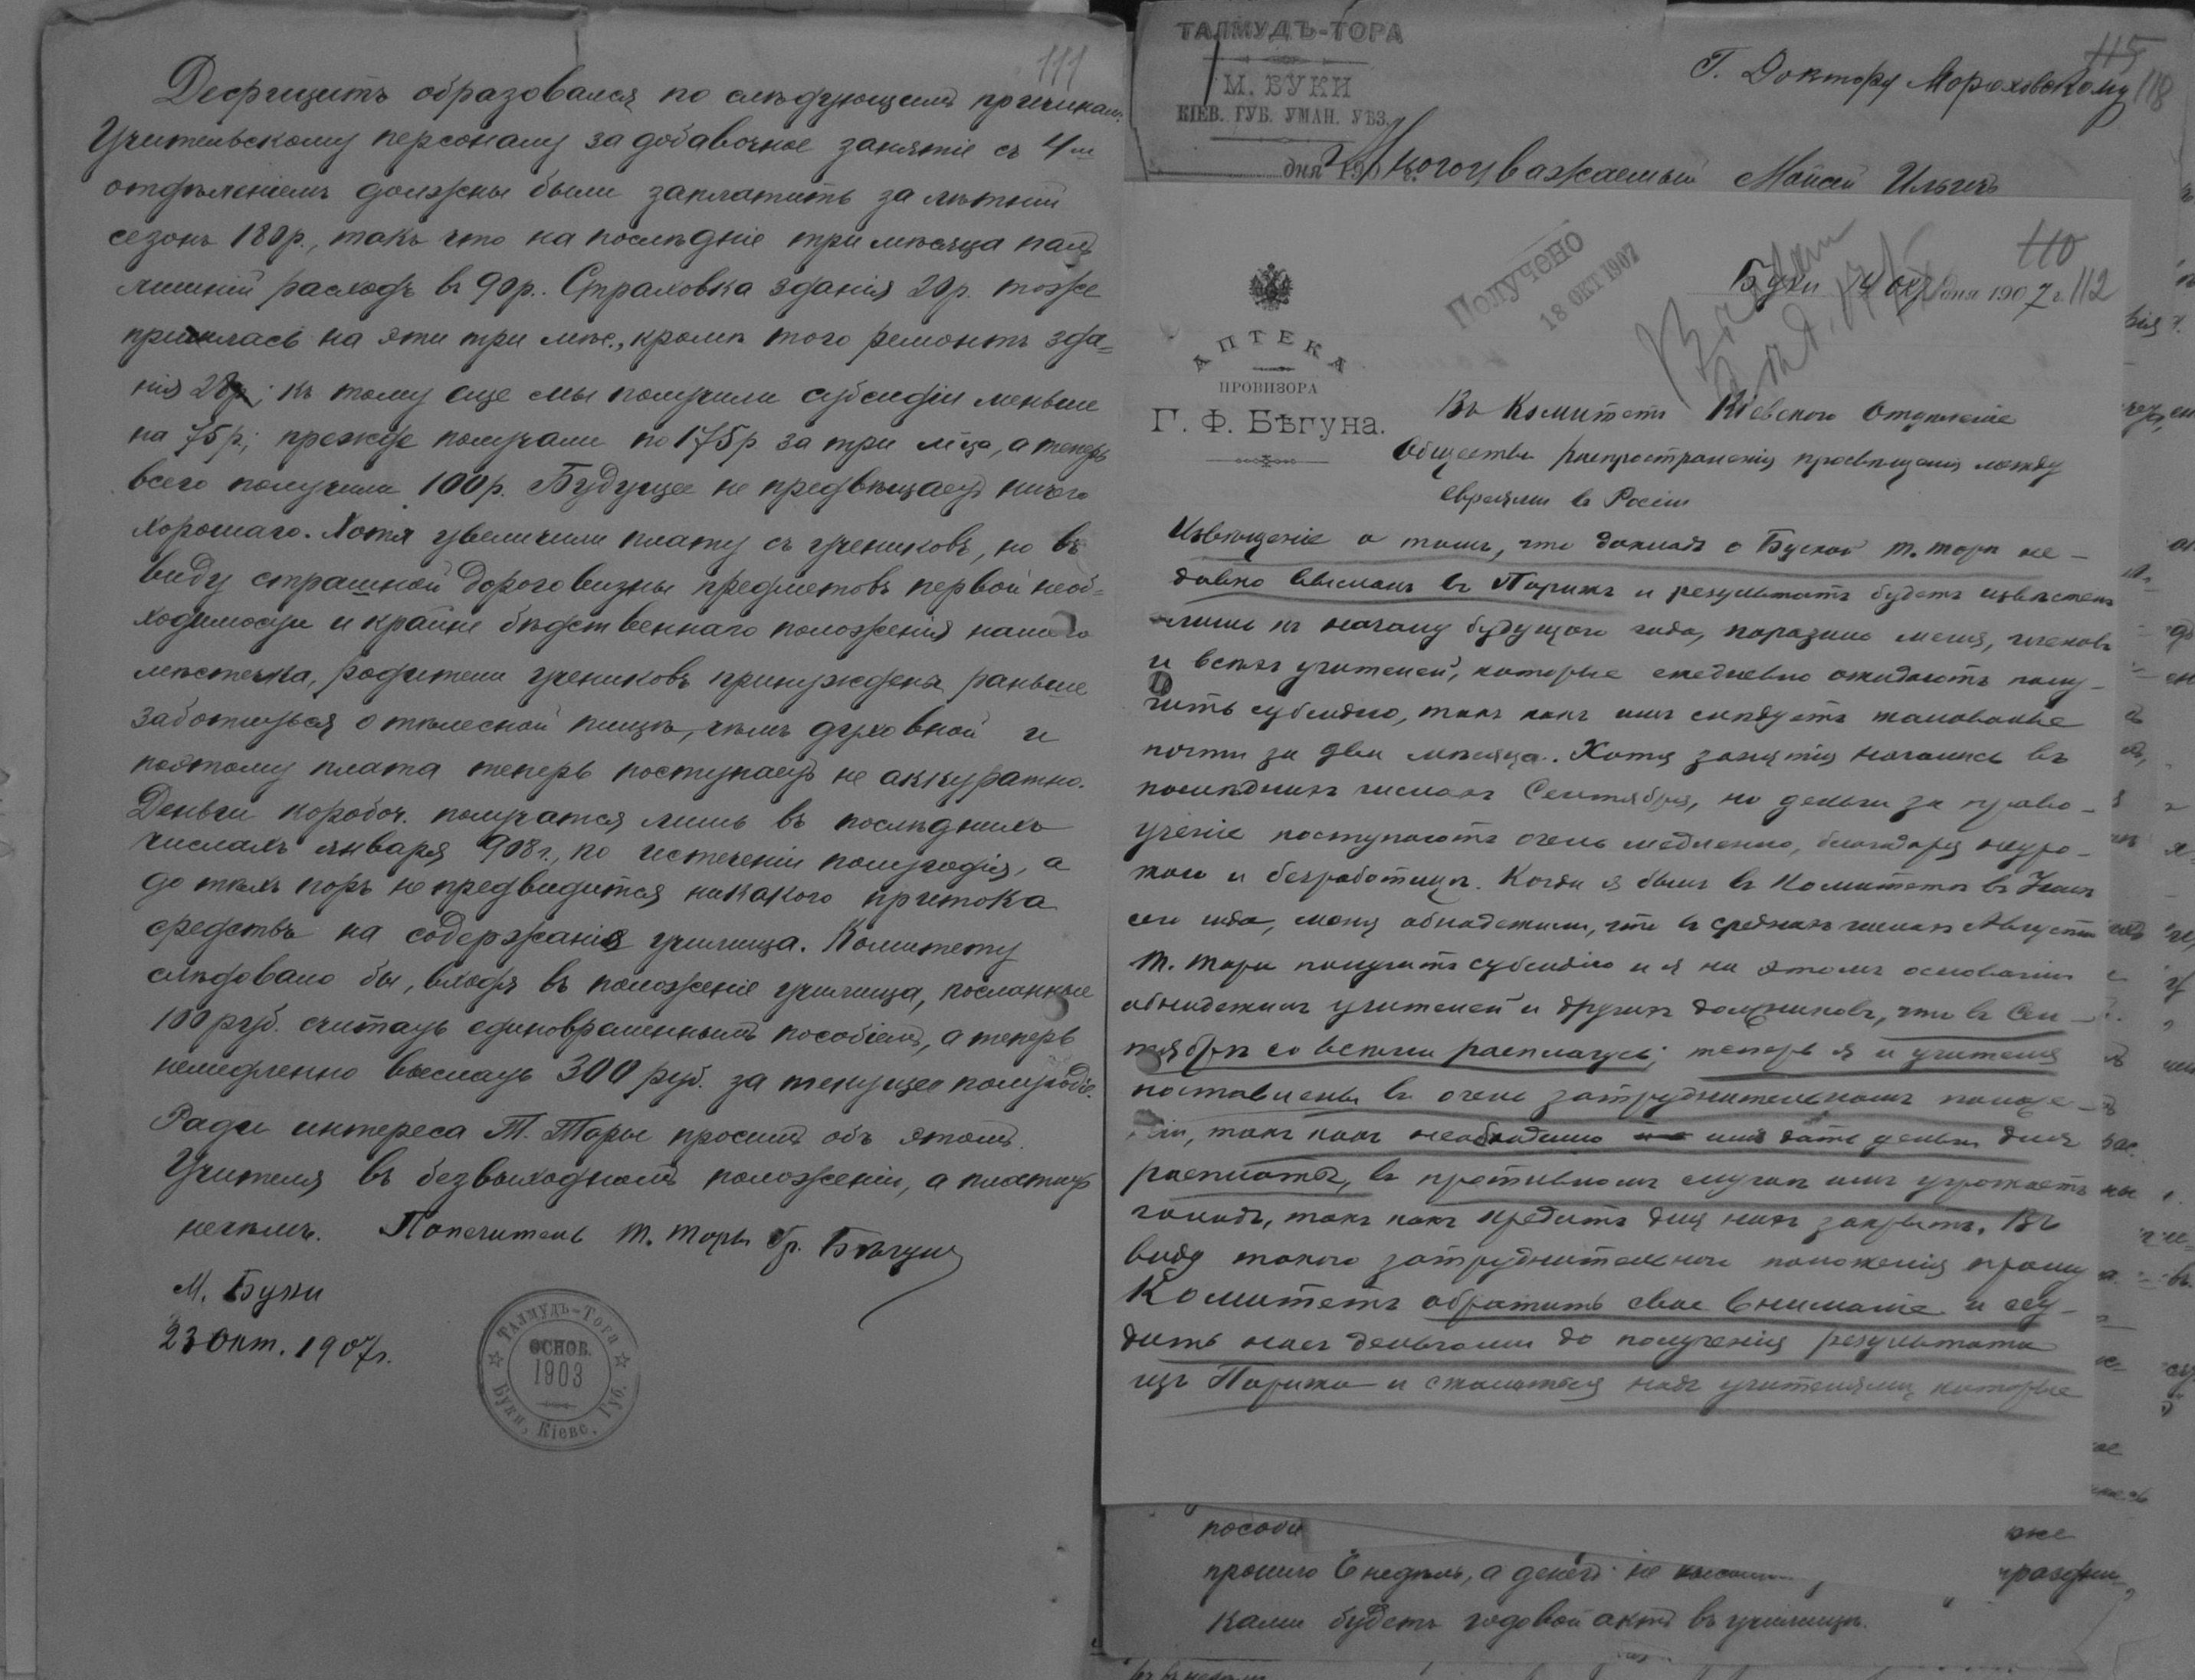 111
Дефицитъ образовался по слѣдующимъ причинамъ:
Учительскому персоналу за добавочное занятіе съ 4м
отдѣленіемъ должны были заплатить за лѣтній
сезонъ 180р., такъ что на послѣдніе три мѣсяца палъ
лишній расходъ въ 90р.. Страховка зданія 20р. тоже
пришлась на эти три мѣс., кромѣ того ремонтъ зда=
нія 28р; къ тому еще мы получили субсидіи меньше
на 75р; прежде получали по 175р. за три м-ца, а теперь
всего получили 100р. Будущее не предвѣщаетъ ничего
хорошаго. Хотя увеличили плату съ учениковъ, но въ
виду страшной дороговизны предметовъ первой необ=
ходимости и крайне бѣдственнаго положенія нашего
мѣстечка, родители учениковъ принуждены раньше
заботиться о тѣлесной пищѣ, чѣмъ духовной и
поэтому плата теперь поступаетъ не аккуратно.
Деньги коробоч. получатся лишь въ послѣднихъ
числахъ января 908г., по истеченіи полугодія, а
до тѣхъ поръ не предвидится никакого притока
средствъ на содержаніе училища. Комитету
слѣдовало бы, входя въ положеніе училища, посланные
100 руб. считать единовременнымъ пособіемъ, а теперь
немедленно выслать 300 руб. за текущее полугодіе.
Ради интереса Т. Торы просимъ объ этомъ.
Учителя въ безвыходномъ положеніи, а платить
нечѣмъ. Попечитель Т. Торы Гр. Бѣгунъ
М. Буки
23 Окт. 1907г.
Талмудъ-Тора
ОСНОВ.
1903
Буки, Кіевс. Губ.
ТАЛМУДЪ-ТОРА
М. БУКИ
КІЕВ. ГУБ. УМАН. УѢЗ.
дня 190 г.
115
118
Г. Доктору Морюховскому
Многоуважаемый Мойсей Ильичъ
Получено
18 ОКТ 1907
110
112
Буки 14 Окт дня 1907 г.
АПТЕКА
ПРОВИЗОРА
Г. Ф. БѢГУНА.
Въ Комитетъ Кіевскаго Отдѣленіе
Общества распространенія просвѣщенія между
евреями въ Россіи
Извѣщеніе о томъ, что докладъ о Букской Т. торѣ не-
давно высланъ въ Парижъ и результатъ будетъ извѣстенъ
лишь къ началу будущаго года, поразило меня, членовъ
и всѣхъ учителей, которые ежедневно ожидаютъ полу-
чить субсидію, такъ какъ имъ слѣдуетъ жалованье
почти за два мѣсяца. Хотя занятія начались въ
послѣднихъ числахъ Сентября, но деньги за право-
ученіе поступаютъ очень медленно, благодаря неуро-
жаю и безработицѣ. Когда я былъ въ Комитетѣ въ Іюлѣ
сего года, меня обнадежили, что въ среднихъ числахъ Августа
Т. тора получитъ субсидію и я на этомъ основаніи
обнадежилъ учителей и другихъ должниковъ, что въ Сен-
тябрѣ со всѣми расплачусь; теперь я и учителя
поставлены въ очень затруднительномъ положе-
ніи, такъ какъ необходимо имъ дать деньги для
расплаты, въ противномъ случаѣ имъ угрожаетъ
голодъ, такъ какъ кредитъ для нихъ закрытъ. Въ
виду такого затруднительнаго положенія прошу
Комитетъ обратить свое вниманіе и ссу-
дить насъ деньгами до полученія результата
изъ Парижа и сжалиться надъ учителями, которые
пособі
прошло 6 недѣль, а денегъ не
праздни-
ками будетъ годовой актъ въ училищѣ.